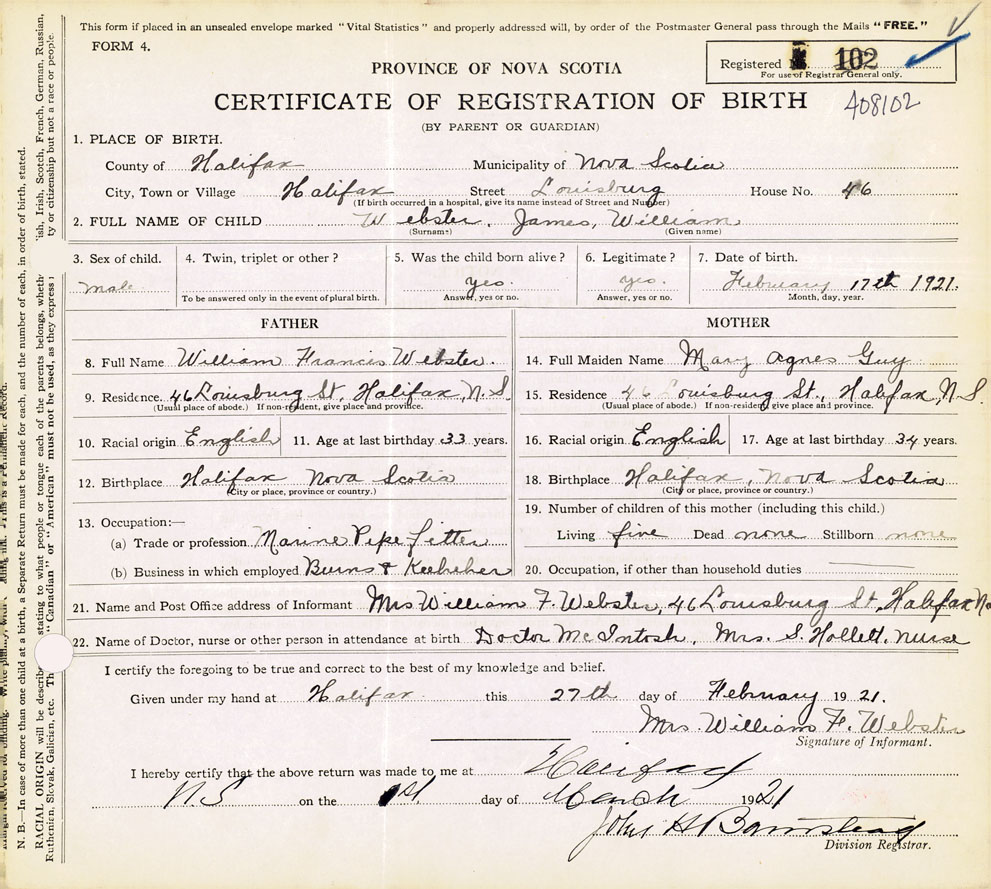 This form if placed in an unsealed envelope marked "Vital Statistics" and properly addressed will, by order of the Postmaster General pass through the Mails "FREE."
FORM 4.
Registered 102
For use of Registrar General only.
PROVINCE OF NOVA SCOTIA
CERTIFICATE OF REGISTRATION OF BIRTH
408102
(BY PARENT OR GUARDIAN)
1. PLACE OF BIRTH.
County of Halifax Municipality of Nova Scotia
City, Town or Village Halifax Street Louisburg House No. 46
(If birth occurred in a hospital, give its name instead of Street and Number)
2. FULL NAME OF CHILD Webster, James, William
(Surname) (Given name)
3. Sex of child. 4. Twin, triplet or other? 5. Was the child born alive? 6. Legitimate? 7. Date of birth.
male yes. yes. February 17th 1921.
To be answered only in the event of plural birth. Answer, yes or no. Answer, yes or no. Month, day, year.
FATHER MOTHER
8. Full Name William Francis Webster. 14. Full Maiden Name Mary Agnes Guy
9. Residence. 46 Louisburg St, Halifax, N.S. 15. Residence 46 Louisburg St., Halifax, N.S.
(Usual place of abode.) If non-resident, give place and province. (Usual place of abode.) If non-resident, give place and province.
10. Racial origin English 11. Age at last birthday 33 years. 16. Racial origin English 17. Age at last birthday 34 years.
12. Birthplace Halifax Nova Scotia 18. Birthplace Halifax, Nova Scotia
(City or place, province or country.) (City or place, province or country.)
13. Occupation:— 19. Number of children of this mother (including this child.)
(a) Trade or profession Marine Pipe Fitter Living five Dead none Stillborn none
(b) Business in which employed Burns & Kelleher 20. Occupation, if other than household duties
21. Name and Post Office address of Informant Mrs William F. Webster, 46 Louisburg St, Halifax No
22. Name of Doctor, nurse or other person in attendance at birth Doctor McIntosh, Mrs. S. Hollett. nurse
I certify the foregoing to be true and correct to the best of my knowledge and belief.
Given under my hand at Halifax. this 27th day of February 1921.
Mrs. William F. Webster
Signature of Informant.
I hereby certify that the above return was made to me at Halifax
NS on the 1st day of March 1921
John H Barnstead
Division Registrar.
N. B.—In case of more than one child at a birth, a Separate Return must be made for each, and the number of each, in order of birth, stated.
RACIAL ORIGIN will be describe stating to what people or tongue each of the parents belongs, wheth ish, Irish, Scotch, French, German, Russian,
Ruthenien, Slovak, Galician, etc. Th "Canadian" or "American" must not be used, as they express ty or citizenship but not a race or people.